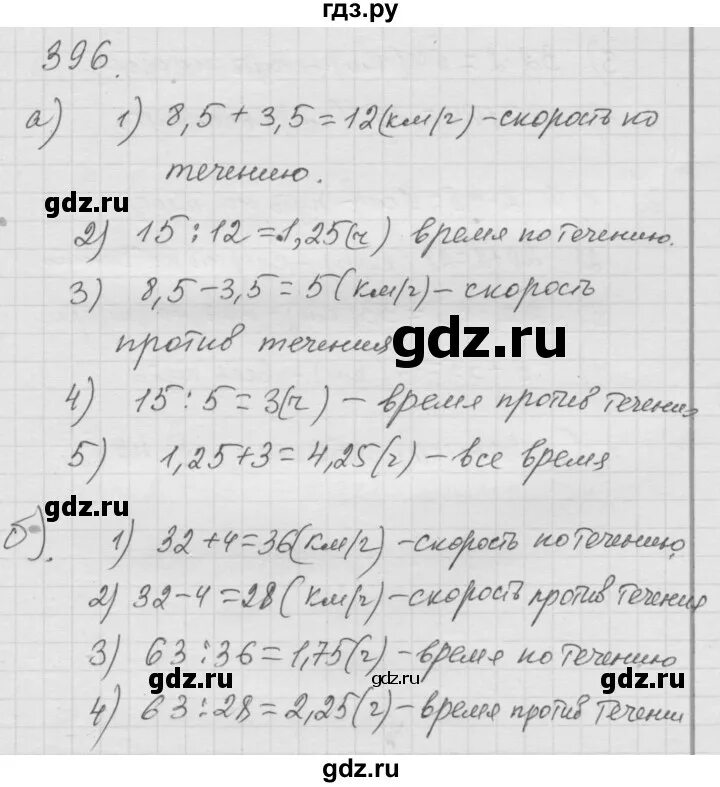 гдз.ру
396.
а) 1) 8,5 + 3,5 = 12 (км/г) - скорость по
течению.
gdz.ru
2) 15 : 12 = 1,25 (ч) время по течению.
3) 8,5 - 3,5 = 5 (км/г) - скорость
против течения
gdz.ru
4) 15 : 5 = 3 (ч) - время против течения
5) 1,25 + 3 = 4,25 (г) - все время
gdz.ru
б). 1) 32 + 4 = 36 (км/г) - скорость по течению,
2) 32 - 4 = 28 (км/г) - скорость против течения
3) 63 : 36 = 1,75 (г) - время по течению
gdz.ru gdz.ru gdz.ru
4) 63 : 28 = 2,25 (г) - время против течени
gdz.ru